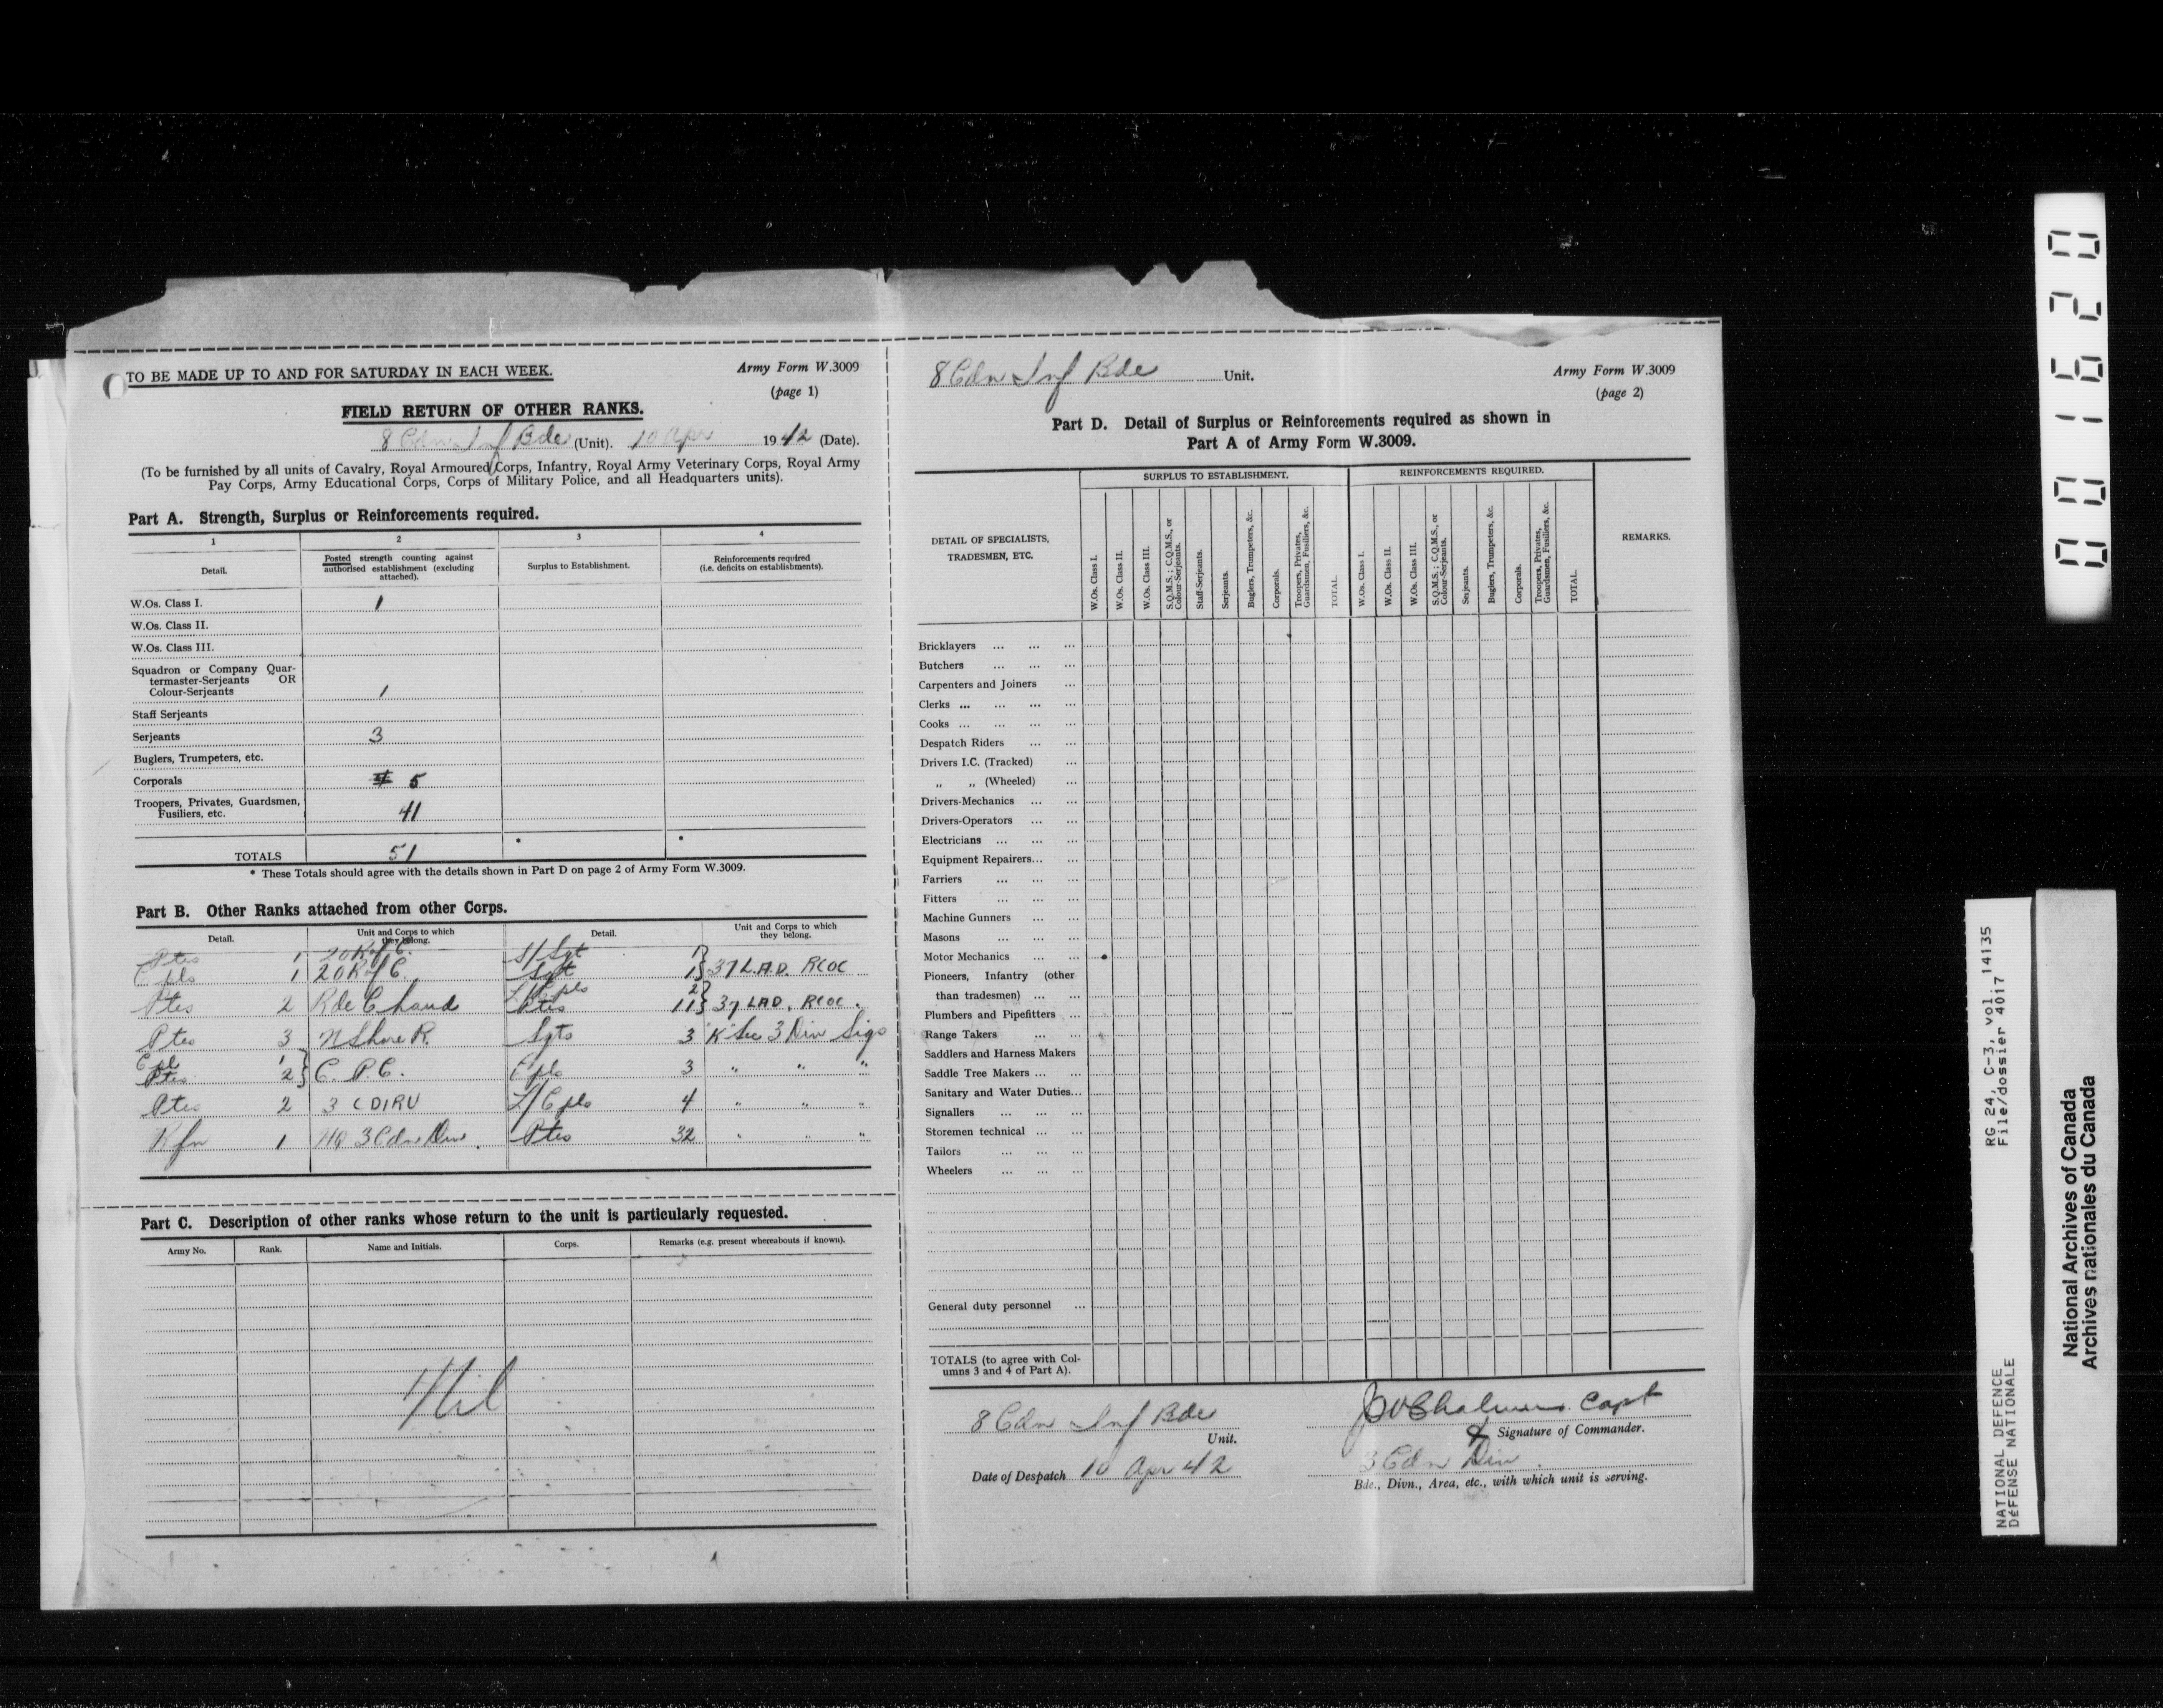 TO BE MADE UP TO AND FOR SATURDAY IN EACH WEEK.
Army Form W.3009
(page 1)
FIELD RETURN OF OTHER RANKS.
8 Cdn Inf Bde (Unit). 10 Apr 1942 (Date).
(To be furnished by all units of Cavalry, Royal Armoured Corps, Infantry, Royal Army Veterinary Corps, Royal Army
Pay Corps, Army Educational Corps, Corps of Military Police, and all Headquarters units).
Part A. Strength, Surplus or Reinforcements required.
1 2 3 4
Detail.
Posted strength counting against
authorised establishment (excluding
attached).
Surplus to Establishment.
Reinforcements required
(i.e. deficits on establishments).
W.Os. Class I. 1
W.Os. Class II.
W.Os. Class III.
Squadron or Company Quar-
termaster-Serjeants OR
Colour-Serjeants 1
Staff Serjeants
Serjeants 3
Buglers, Trumpeters, etc.
Corporals 5
Troopers, Privates, Guardsmen,
Fusiliers, etc. 41
TOTALS 51 * *
* These Totals should agree with the details shown in Part D on page 2 of Army Form W.3009.
Part B. Other Ranks attached from other Corps.
Detail. Unit and Corps to which they belong. Detail. Unit and Corps to which they belong.
Ptes 1 2 O R of C. S/Sgt 1
Cpls 1 2 O R of C. Sgt 1 } 37 L.A.D. RCOC
L/Cpls 2
Ptes 2 R de Chaud Ptes 11 } 37 LAD. RCOC.
Ptes 3 N Shore R. Sgts 3 K Sec 3 Div Sigs
Cpl 1
Ptes 2 } C.P.C. Cpls 3 " " "
Ptes 2 3 CDIRU L/Cpls 4 " " "
Rfn 1 HQ 3 Cdn Div. Ptes 32 " " "
Part C. Description of other ranks whose return to the unit is particularly requested.
Army No. Rank. Name and Initials. Corps. Remarks (e.g. present whereabouts if known).
Nil
8 Cdn Inf Bde Unit.
Army Form W.3009
(page 2)
Part D. Detail of Surplus or Reinforcements required as shown in
Part A of Army Form W.3009.
DETAIL OF SPECIALISTS,
TRADESMEN, ETC.
SURPLUS TO ESTABLISHMENT.
W.Os. Class I.
W.Os. Class II.
W.Os. Class III.
S.Q.M.S.; C.Q.M.S., or
Colour-Serjeants.
Staff-Serjeants.
Serjeants.
Buglers, Trumpeters, &c.
Corporals.
Troopers, Privates,
Guardsmen, Fusiliers, &c.
TOTAL.
REINFORCEMENTS REQUIRED.
W.Os. Class I.
W.Os. Class II.
W.Os. Class III.
S.Q.M.S.; C.Q.M.S., or
Colour-Serjeants.
Serjeants.
Buglers, Trumpeters, &c.
Corporals.
Troopers, Privates,
Guardsmen, Fusiliers, &c.
TOTAL.
REMARKS.
Bricklayers ... ... ...
Butchers ... ... ...
Carpenters and Joiners ...
Clerks ... ... ... ...
Cooks ... ... ... ...
Despatch Riders ... ...
Drivers I.C. (Tracked) ...
„ „ (Wheeled) ...
Drivers-Mechanics ... ...
Drivers-Operators ... ...
Electricians ... ... ...
Equipment Repairers... ...
Farriers ... ... ...
Fitters ... ... ...
Machine Gunners ... ...
Masons ... ... ...
Motor Mechanics ... ...
Pioneers, Infantry (other
than tradesmen) ... ...
Plumbers and Pipefitters ...
Range Takers ... ...
Saddlers and Harness Makers
Saddle Tree Makers ... ...
Sanitary and Water Duties...
Signallers ... ... ...
Storemen technical ... ...
Tailors ... ... ...
Wheelers ... ... ...
General duty personnel ...
TOTALS (to agree with Col-
umns 3 and 4 of Part A).
8 Cdn Inf Bde
Unit.
Date of Despatch 10 Apr 42
Capt
Signature of Commander.
3 Cdn Div.
Bde., Divn., Area, etc., with which unit is serving.
001620
RG 24, C-3, vol. 14135
File/dossier 4017
NATIONAL DEFENCE
DÉFENSE NATIONALE
National Archives of Canada
Archives nationales du Canada